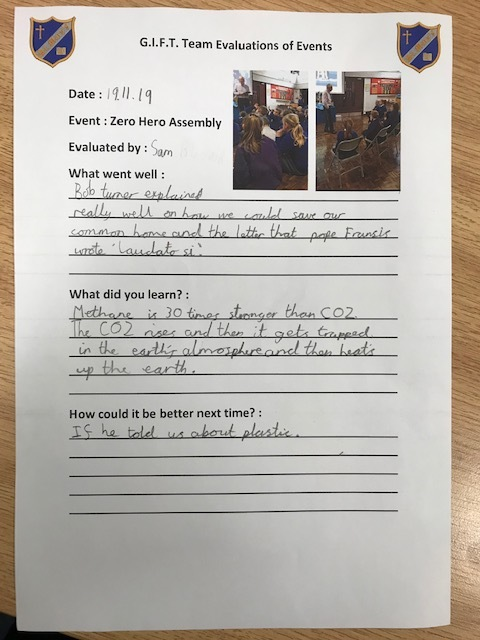 G.I.F.T. Team Evaluations of Events
Date : 19.11.19
Event : Zero Hero Assembly
Evaluated by : Sam
What went well :
Bob turner explained
really well on how we could save our
common home and the letter that pope Fransis
wrote 'Laudato si'.
What did you learn? :
Methane is 30 times stronger than CO2.
The CO2 rises and then it gets trapped
in the earth's atmosphere and then heats
up the earth.
How could it be better next time? :
If he told us about plastic.